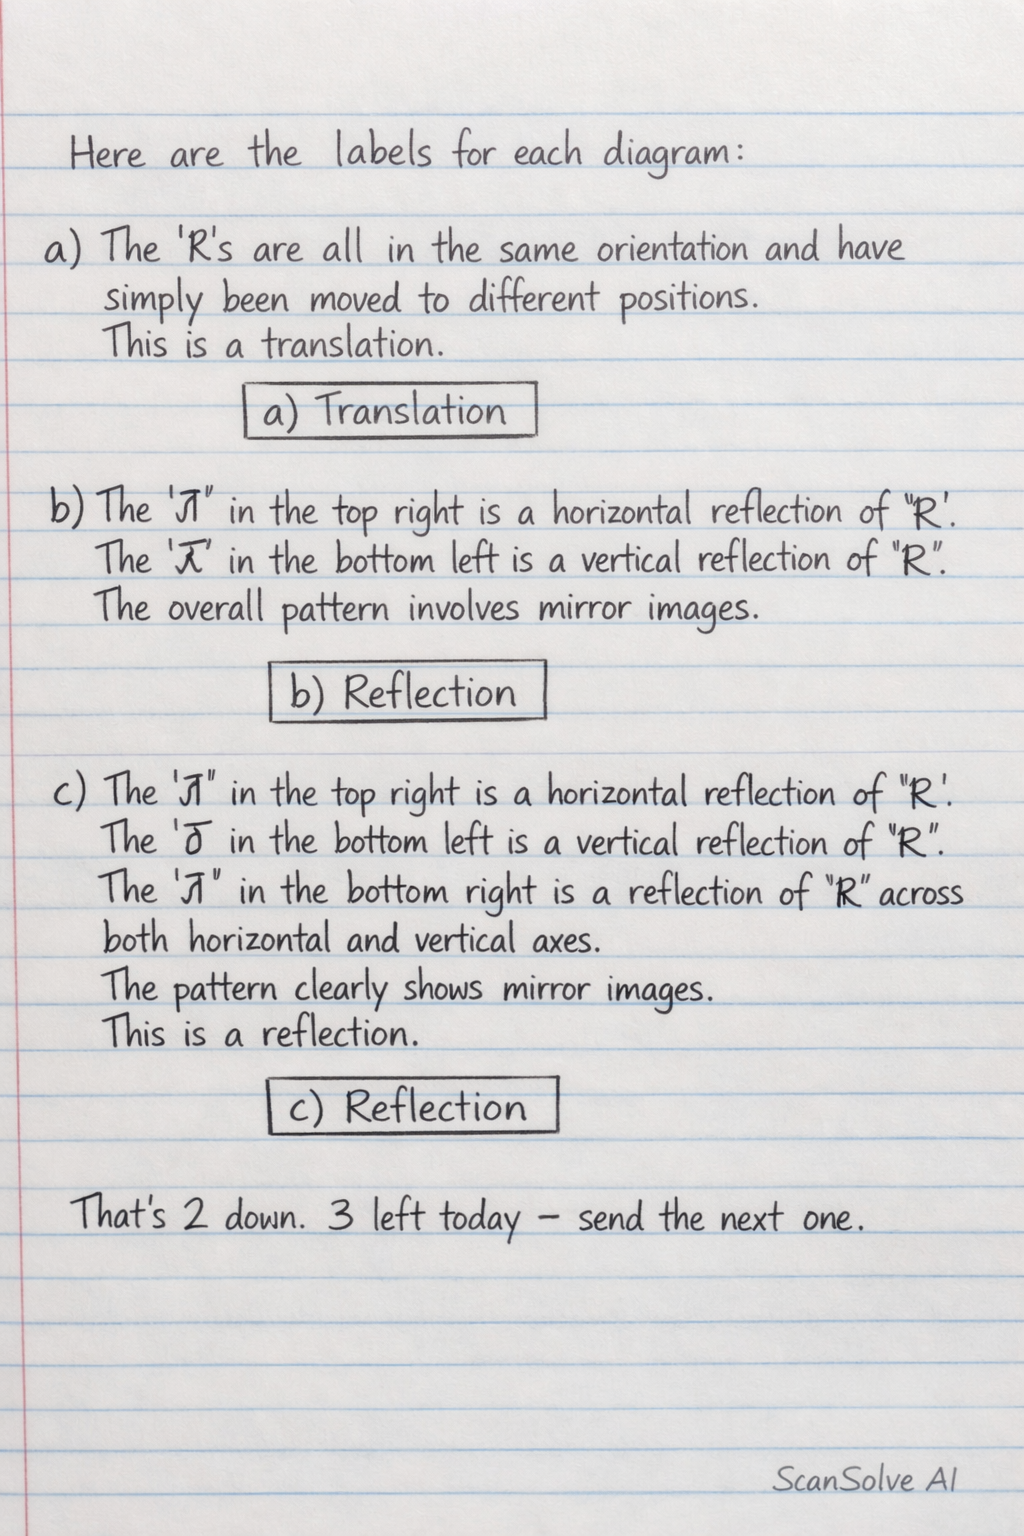 Here are the labels for each diagram:
a) The 'R's are all in the same orientation and have
simply been moved to different positions.
This is a translation.
a) Translation
b) The in the top right is a horizontal reflection of "R'.
The in the bottom left is a vertical reflection of "R".
The overall pattern involves mirror images.
b) Reflection
c) The in the top right is a horizontal reflection of "R'.
The in the bottom left is a vertical reflection of "R".
The in the bottom right is a reflection of "R" across
both horizontal and vertical axes.
The pattern clearly shows mirror images.
This is a reflection.
c) Reflection
That's 2 down. 3 left today – send the next one.
ScanSolve AI